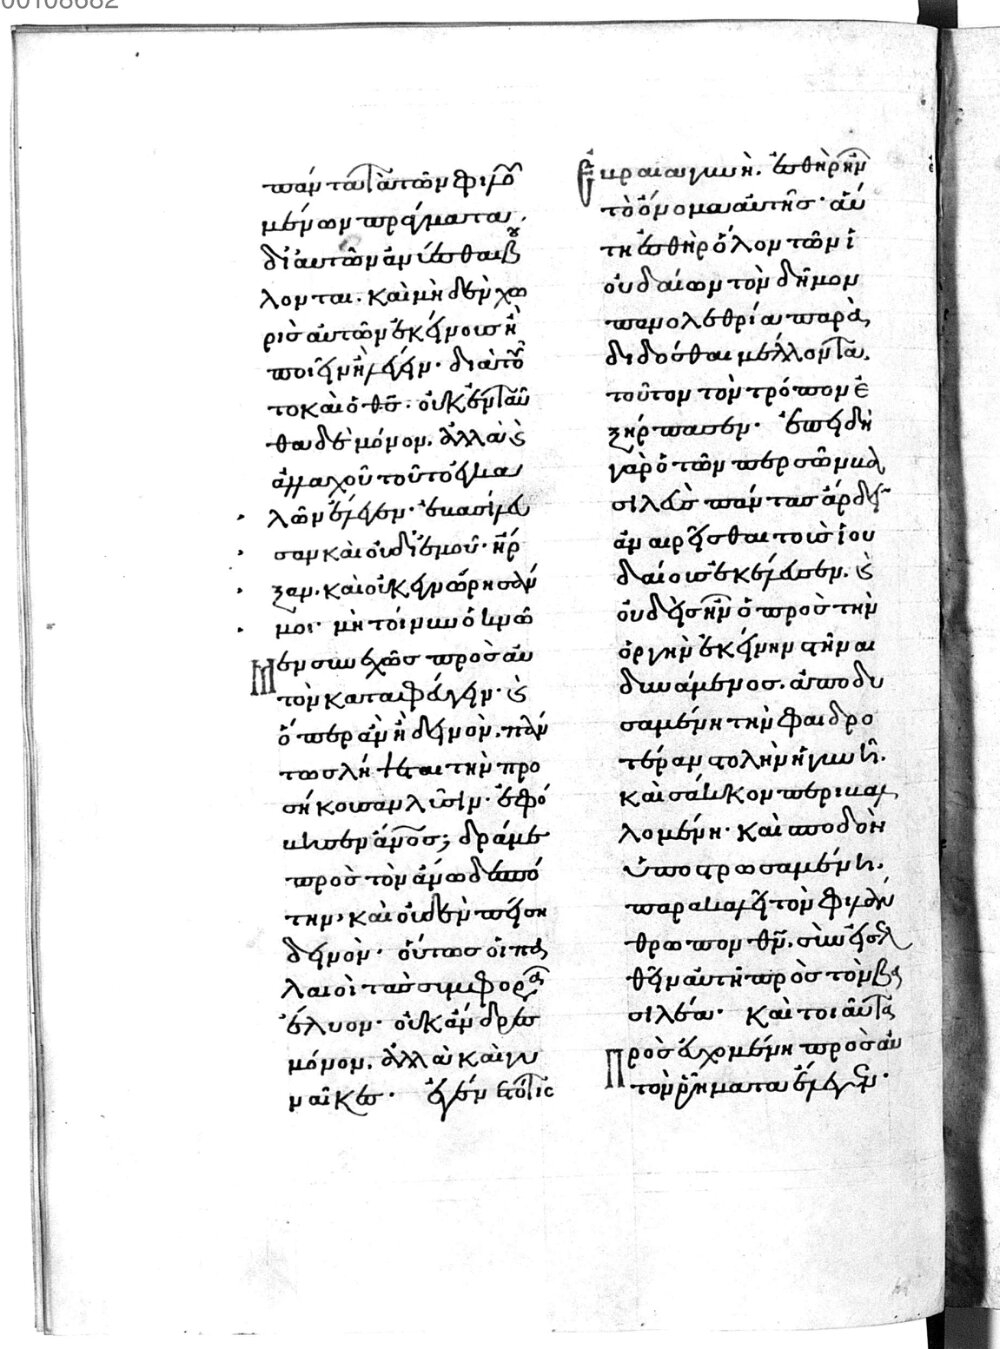 00108682
πάντα τὰ αὐτῶν φιλο
μένων πράγματα,
δι' αὐτῶν ἀνύεσθαι βού
λονται. καὶ μηδὲν χω
ρὶς αὐτῶν ἐκείνοις ἢ
ποιεῖν ἢ λέγειν· διὰ τοῦ
το καὶ ὁ θς. οὐκ ἐνταῦ
θα δὲ μόνον. ἀλλὰ καὶ
ἀλλαχοῦ τοῦτο εἶμα
λῶν ἔλεγεν· ἐκασίμευ
σαν καὶ οὐ δι' ἐμοῦ· ἦρ
ξαν. καὶ οὐκ ἐγνώρησάν
μοι· μὴ τοίνυν ὀκνῶ
μεν συνεχῶς πρὸς αὐ
τὸν καταφεύγειν· καὶ
ὅπερ ἂν ᾖ δεινὸν. πάν
τως λή εται τὴν προ
σήκουσαν λύσιν· ἐφό
κησεν ἄνος; δράμε
πρὸς τὸν ἄνω δεσπό
την, καὶ οὐδὲν πείσῃ
δεινὸν· οὕτως οἱ πα
λαιοὶ τὰς συμφορὰς
ἔλυον· οὐκ ἄνδρες
μόνον. ἀλλὰ καὶ γυ
ναῖκες· ἐγένετό τις
ἑβραία γυνὴ. ἐσθὴρ ἦν
τὸ ὄνομα αὐτῆς· αὕ
τη ἐσθὴρ ὅλον τῶν ἰ
ουδαίων τὸν δῆμον
πανολεθρία παρα
δίδοσθαι μέλλοντα.
τοῦτον τὸν τρόπον ἐ
ξήρπασεν· ἐπειδὴ
γὰρ ὁ τῶν περσῶν βα
σιλεὺς πάντας ἄρδην
ἀναιρεῖσθαι τοὺς ἰου
δαίους ἐκέλευσεν. καὶ
οὐδεὶς ἦν ὁ πρὸς τὴν
ὀργὴν ἐκείνην στῆναι
δυνάμενος. ἀποδυ
σαμένη τὴν φαιδρο
τέραν στολὴν ἡ γυνὴ.
καὶ σάκκον περιβαλ
λομένη· καὶ σποδὸν
ὑποστρωσαμένη.
παρακαλεῖ τὸν φιλάν
θρωπον θν. συνεισελ
θεῖν αὐτῇ πρὸς τὸν βα
σιλέα· καὶ τοιαῦτα
προσευχομένη πρὸς αὐ
τὸν ῥήματα ἔλεγεν·